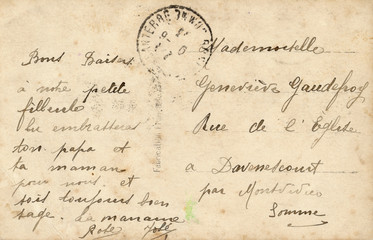 Bons Baisers
à notre petite
filleule
tu embrasseras
ton papa et
ta maman
pour nous et
sois toujours bien
sage. La marraine
Mademoiselle
Geneviève Gaudefroy
Rue de l'Eglise
a Davenescourt
par Montdidier
Somme
NANTERRE
Fabrication